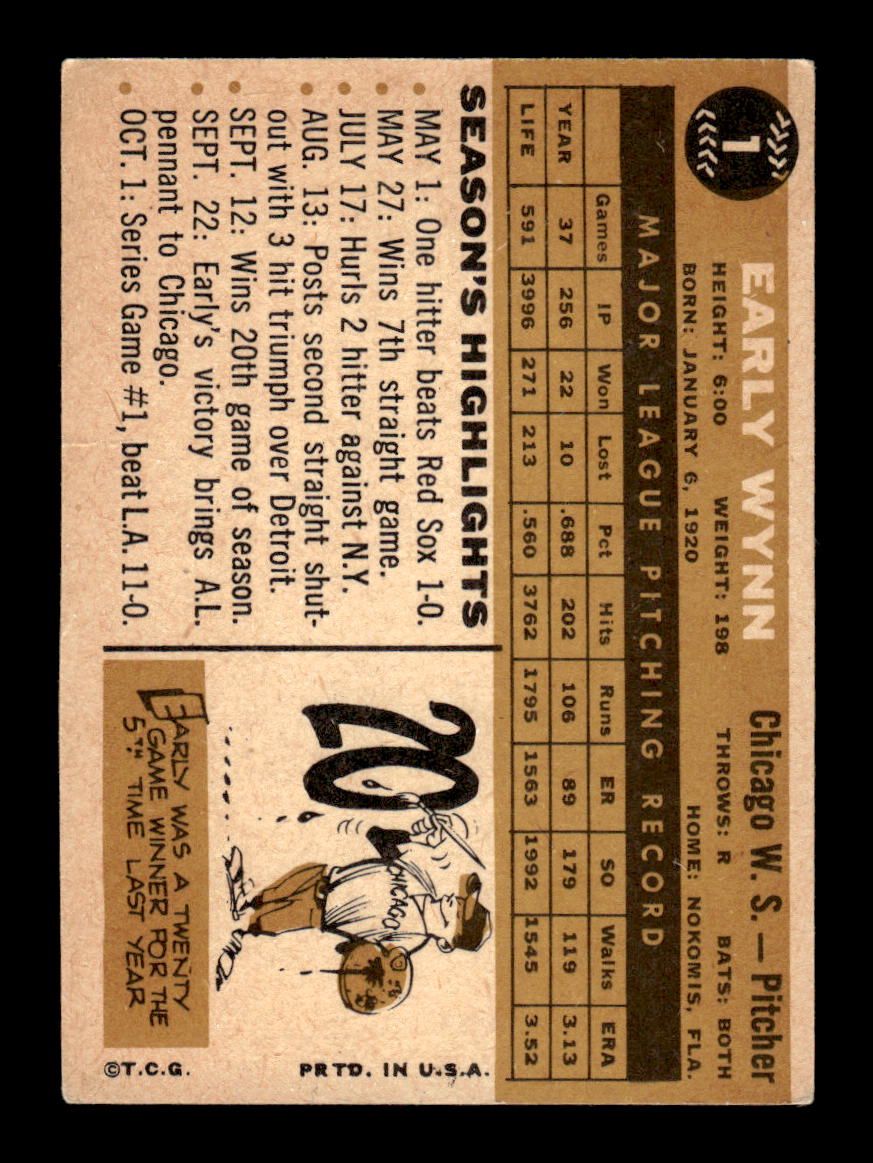 1
EARLY WYNN Chicago W. S. — Pitcher
HEIGHT: 6:00 WEIGHT: 198 THROWS: R BATS: BOTH
BORN: JANUARY 6, 1920 HOME: NOKOMIS, FLA.
MAJOR LEAGUE PITCHING RECORD
Games IP Won Lost Pct Hits Runs ER SO Walks ERA
YEAR 37 256 22 10 .688 202 106 89 179 119 3.13
LIFE 591 3996 271 213 .560 3762 1795 1563 1992 1545 3.52
SEASON'S HIGHLIGHTS
• MAY 1: One hitter beats Red Sox 1-0.
• MAY 27: Wins 7th straight game.
• JULY 17: Hurls 2 hitter against N.Y.
• AUG. 13: Posts second straight shut-
out with 3 hit triumph over Detroit.
• SEPT. 12: Wins 20th game of season.
• SEPT. 22: Early's victory brings A.L.
pennant to Chicago.
• OCT. 1: Series Game #1, beat L.A. 11-0.
20
CHICAGO
EARLY WAS A TWENTY
GAME WINNER FOR THE
5TH TIME LAST YEAR
©T.C.G. PRTD. IN U.S.A.